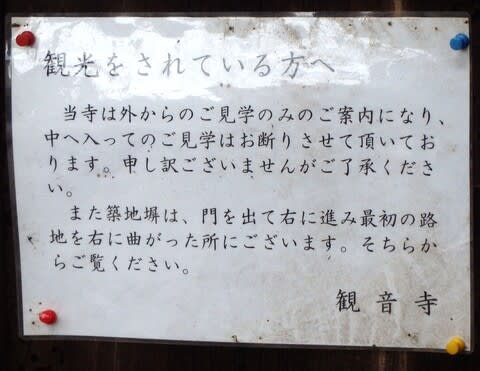 観光をされている方へ
当寺は外からのご見学のみのご案内になり、
中へ入ってのご見学はお断りさせて頂いてお
ります。申し訳ございませんがご了承くださ
い。
また築地塀は、門を出て右に進み最初の路
地を右に曲がった所にございます。そちらか
らご覧ください。
観音寺